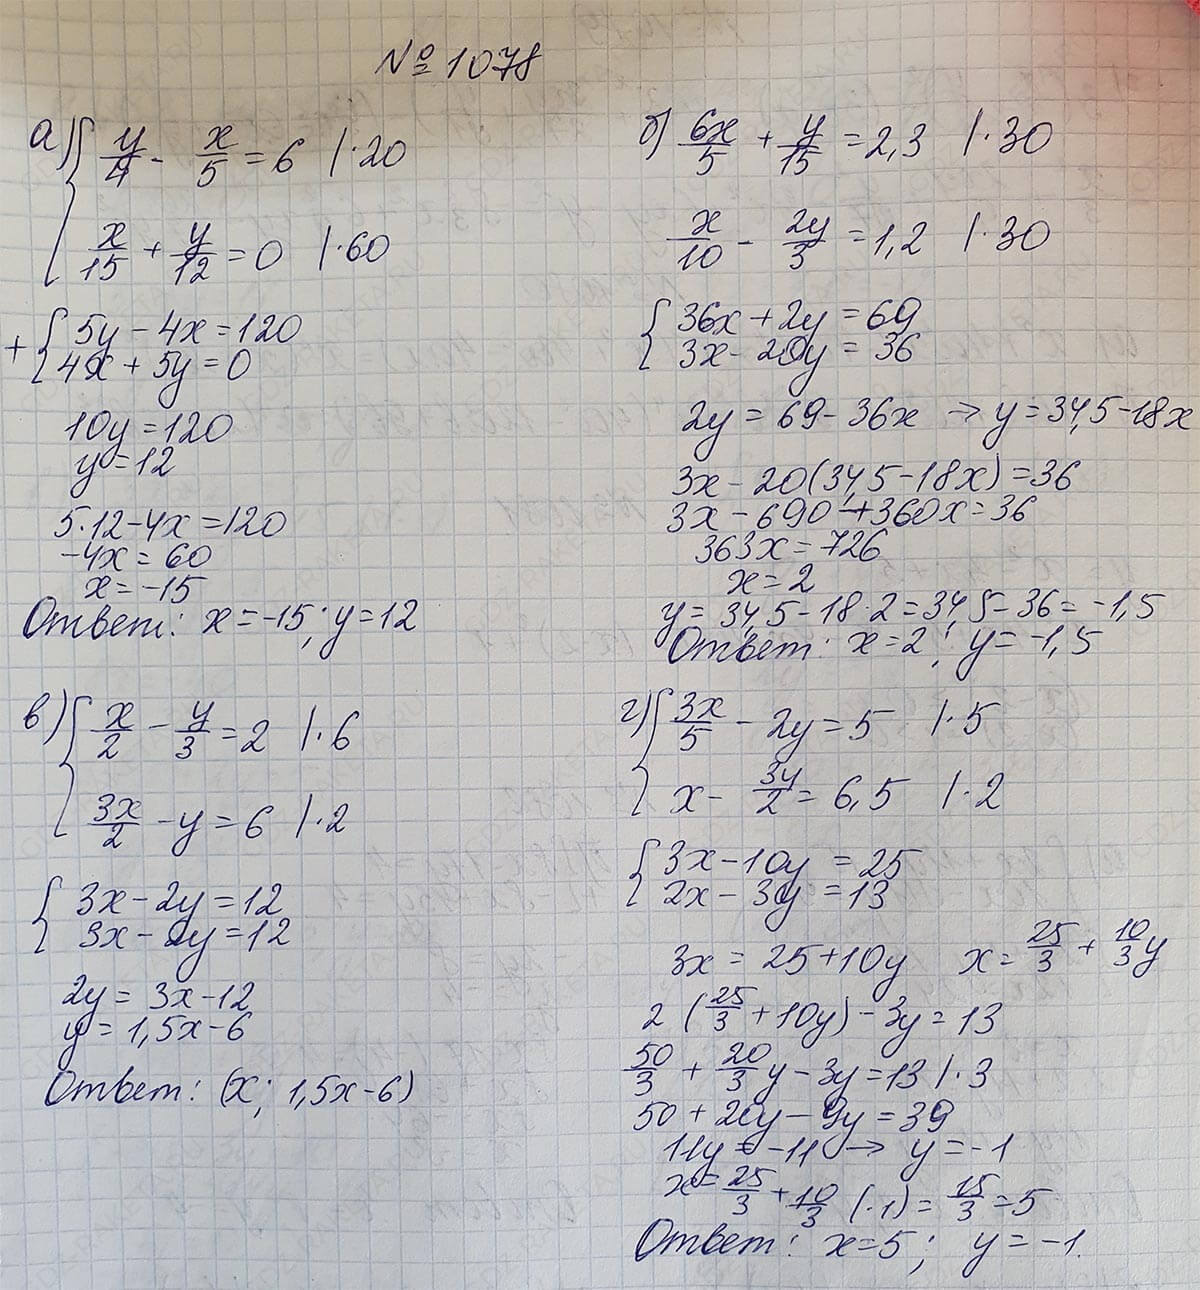 № 1078
а) { y/4 - x/5 = 6 |·20
x/15 + y/12 = 0 |·60
+ { 5y - 4x = 120
4x + 5y = 0
10y = 120
y = 12
5·12 - 4x = 120
-4x = 60
x = -15
Ответ: x = -15; y = 12
б) 6x/5 + y/15 = 2,3 |·30
x/10 - 2y/3 = 1,2 |·30
{ 36x + 2y = 69
3x - 20y = 36
2y = 69 - 36x → y = 34,5 - 18x
3x - 20(34,5 - 18x) = 36
3x - 690 + 360x = 36
363x = 726
x = 2
y = 34,5 - 18·2 = 34,5 - 36 = -1,5
Ответ: x = 2; y = -1,5
в) { x/2 - y/3 = 2 |·6
3x/2 - y = 6 |·2
{ 3x - 2y = 12
3x - 2y = 12
2y = 3x - 12
y = 1,5x - 6
Ответ: (x; 1,5x - 6)
г) { 3x/5 - 2y = 5 |·5
x - 3y/2 = 6,5 |·2
{ 3x - 10y = 25
2x - 3y = 13
3x = 25 + 10y x = 25/3 + 10/3 y
2 (25/3 + 10y) - 3y = 13
50/3 + 20/3 y - 3y = 13 |·3
50 + 20y - 9y = 39
11y = -11 → y = -1
x = 25/3 + 10/3 (-1) = 15/3 = 5
Ответ: x = 5; y = -1.